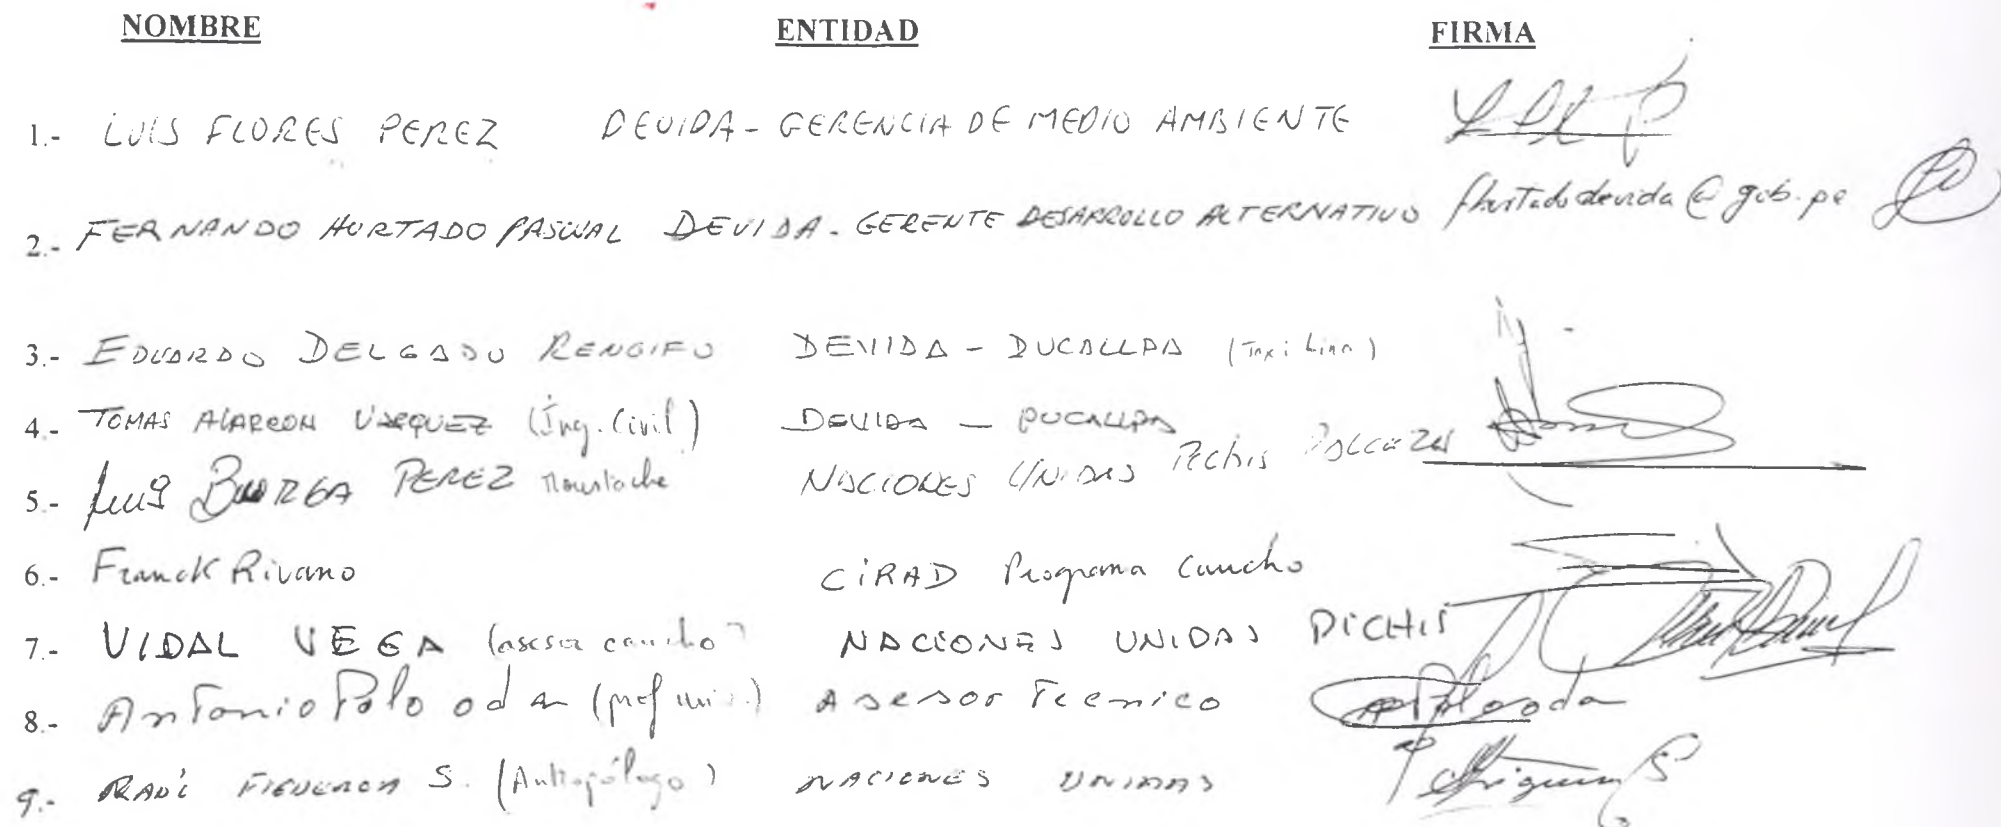 NOMBRE ENTIDAD FIRMA
1.- LUIS FLORES PEREZ DEVIDA - GERENCIA DE MEDIO AMBIENTE
2.- FERNANDO HURTADO PASCUAL DEVIDA - GERENTE DESARROLLO ALTERNATIVO fhurtadodevida@gob.pe
3.- EDUARDO DELGADO RENGIFO DEVIDA - PUCALLPA (Taxi Lina)
4.- TOMAS ALARCON VASQUEZ (Ing. Civil) DEVIDA - PUCALLPA
5.- Luis BORGA PEREZ Moustache NACIONES UNIDAS Pichis Palcazu
6.- Franck Rivano CIRAD Programa Caucho
7.- VIDAL VEGA (asesor caucho) NACIONES UNIDAS PICHIS
8.- Antonio Polo oda (prof uni.) Asesor Tecnico
9.- RAUL FIGUEROA S. (Antropólogo) NACIONES UNIDAS